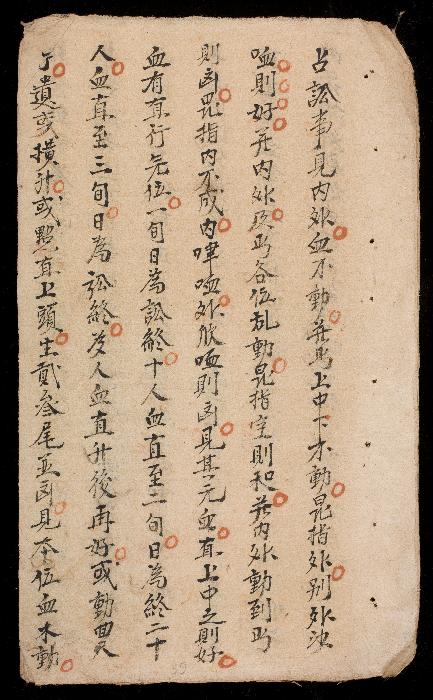 占訟事見内外血不動并丐上中下不動昆指外別外決
㗂則好并内外及丐各位乱動昆指定則和并内外動到丐
則凶昆指内不成内㗂外欣㗂則凶見其元血直上中之則好
血有直行元位一旬日為訟終十人血直至二旬日為終二十
人血直至三旬日為訟終及人血直升後再好或動
了遺或横升或點直上頭生貳叁尾並凶見本位血不動